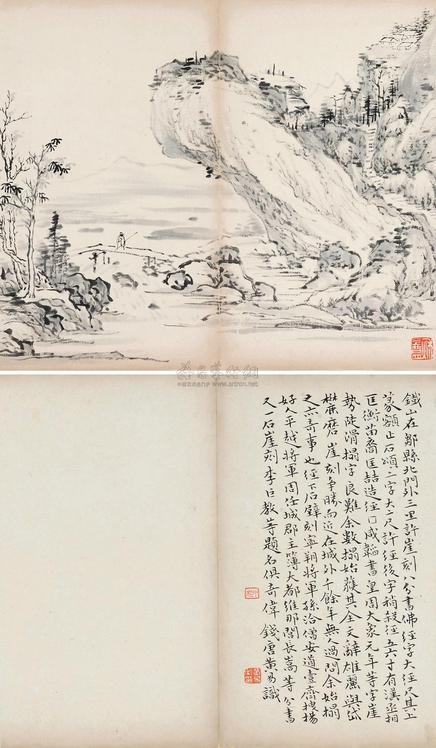 鐵山在鄒縣北門外三里許崖刻八分書佛經字大徑尺其上
篆額止石頌二字大二尺許經後字稍殺徑五六寸有漢丞相
匡衡苗裔匡喆造經口咸韜書皇周大象元年等字崖
勢陡滑搨字良難余數搨始獲其全文辭雄麗與岱
麓磨崖刻爭勝而近在城外千餘年無人過問余始搨
之亦奇事也經下石壁刻寧朔將軍孫洽僧安道壹齊搜揚
好人平越將軍周任城郡主簿大都維那閭長嵩等八分書
又一石崖刻李巨敖等題名俱奇偉 錢唐黃易識